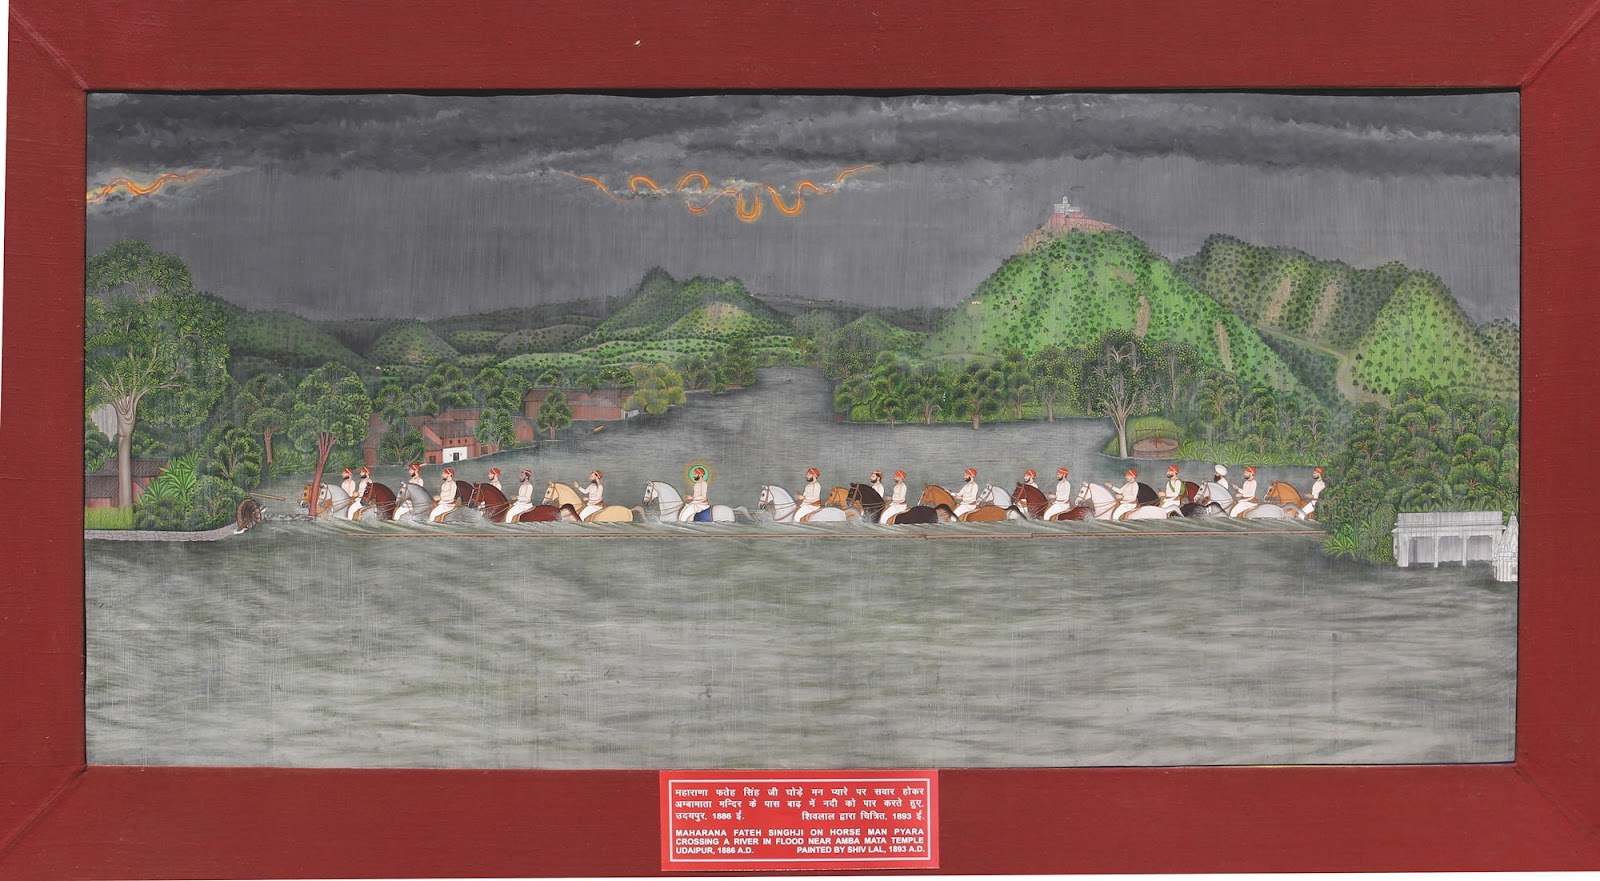 महाराणा फतेह सिंह जी घोड़े मन प्यारे पर सवार होकर
अम्बामाता मन्दिर के पास बाढ़ में नदी को पार करते हुए,
उदयपुर, 1886 ई. शिवलाल द्वारा चित्रित, 1893 ई.
MAHARANA FATEH SINGHJI ON HORSE MAN PYARA
CROSSING A RIVER IN FLOOD NEAR AMBA MATA TEMPLE
UDAIPUR, 1886 A.D. PAINTED BY SHIV LAL, 1893 A.D.